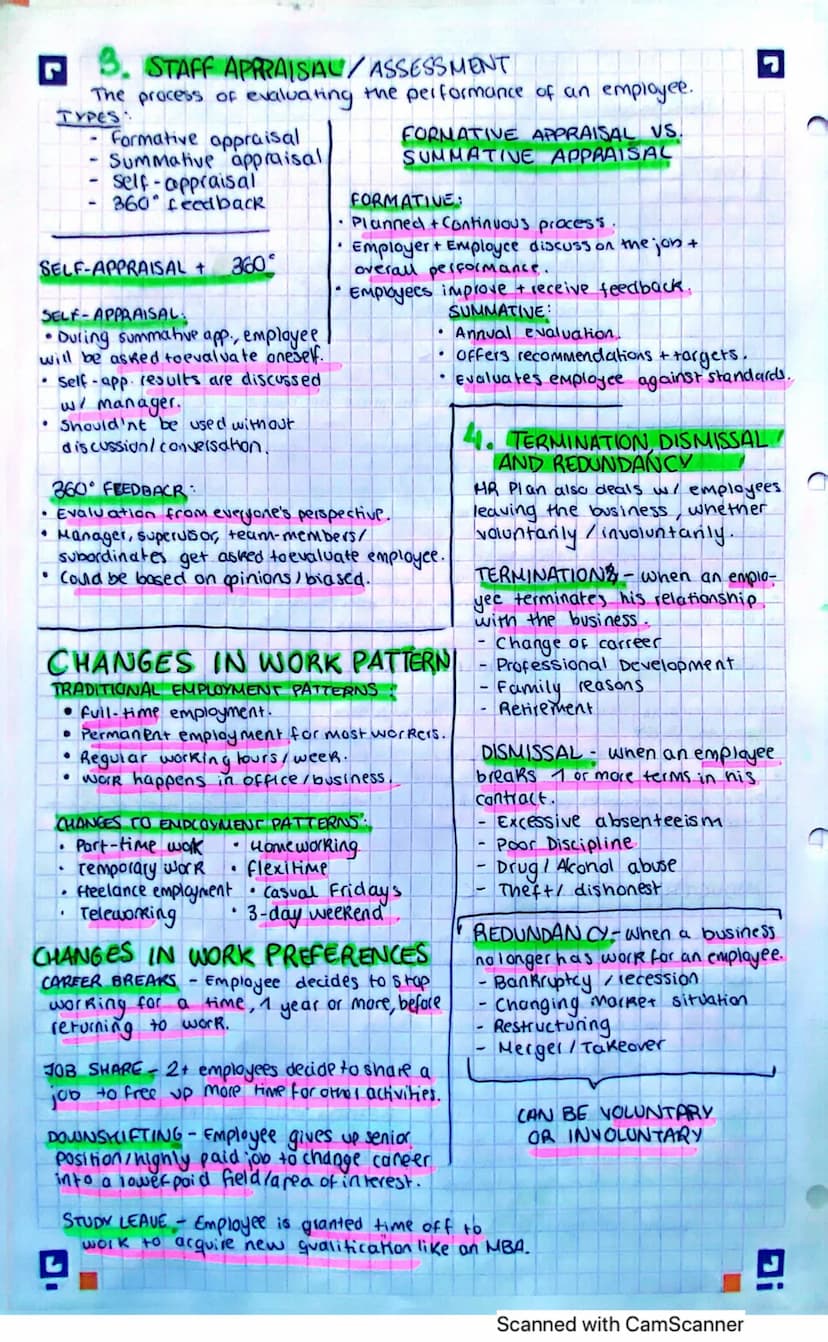 3. STAFF APPRAISAL / ASSESSMENT
The process of evaluating the performance of an employee.
TYPES:
- Formative appraisal
- Summative appraisal
- Self-appraisal
- 360° feedback
FORMATIVE APPRAISAL VS.
SUMMATIVE APPRAISAL
FORMATIVE:
• Planned + Continuous process.
• Employer + Employee discuss on the job +
overall performance.
• Employees improve + receive feedback.
SUMMATIVE:
• Annual evaluation.
• Offers recommendations + targets.
• Evaluates employee against standards.
SELF-APPRAISAL + 360°
SELF-APPRAISAL:
• During summative app., employee
will be asked to evaluate oneself.
• Self-app. results are discussed
w/ manager.
• Should'nt be used without
discussion/conversation.
360° FEEDBACK:
• Evaluation from everyone's perspective.
• Manager, supervisor, team-members/
subordinates get asked to evaluate employee.
• Could be based on opinions/biased.
CHANGES IN WORK PATTERN
TRADITIONAL EMPLOYMENT PATTERNS:
• Full-time employment.
• Permanent employment for most workers.
• Regular working hours/week.
• Work happens in office/business.
CHANGES TO EMPLOYMENT PATTERNS:
• Part-time work • Homeworking
• Temporary work • Flexitime
• Freelance employment • Casual Fridays
• Teleworking • 3-day weekend
CHANGES IN WORK PREFERENCES
CAREER BREAKS - Employee decides to stop
working for a time, 1 year or more, before
returning to work.
JOB SHARE - 2+ employees decide to share a
job to free up more time for other activities.
DOWNSHIFTING - Employee gives up senior
position/highly paid job to change career
into a lower paid field/area of interest.
STUDY LEAVE - Employee is granted time off to
work to acquire new qualification like an MBA.
4. TERMINATION, DISMISSAL
AND REDUNDANCY
HR Plan also deals w/ employees
leaving the business, whether
voluntarily / involuntarily.
TERMINATION - when an emplo-
yee terminates his relationship
with the business.
- Change of carreer
- Professional Development
- Family reasons
- Retirement
DISMISSAL - when an employee
breaks 1 or more terms in his
contract.
- Excessive absenteeism
- Poor Discipline
- Drug / Alcohol abuse
- Theft / dishonest
REDUNDANCY - when a business
no longer has work for an employee.
- Bankruptcy / recession
- Changing market situation
- Restructuring
- Merger / Takeover
CAN BE VOLUNTARY
OR INVOLUNTARY
Scanned with CamScanner